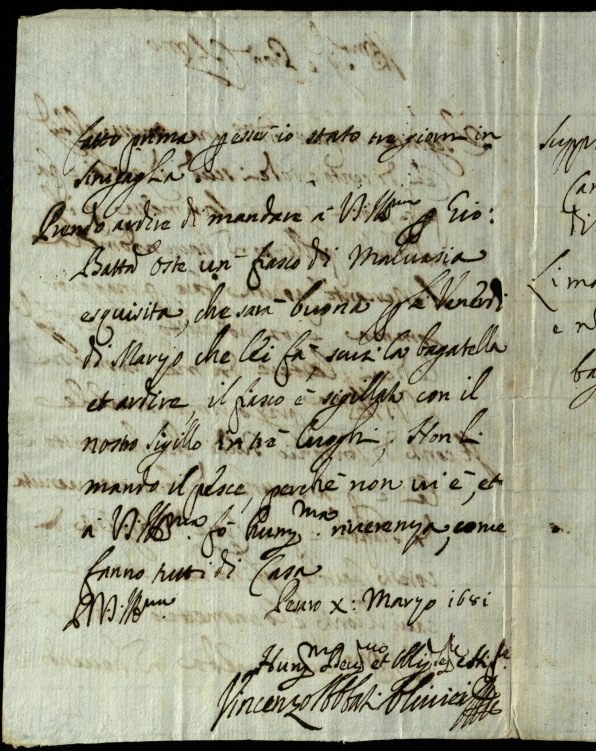 fatto prima p esser io stato tre giorni in
Sinigaglia
Prendo ardire di mandare à V.S. Ill.ma p Gio:
Batta Oste un fiasco di Malvasia
esquisita, che sarà buona p li Venerdi
di Marzo che lei fà, scusi la bagatella
et ardire, il fiasco è sigillato con il
nostro sigillo in trè luoghi, Non li
mando il pesce, perche non vi è, et
à V.S. Ill.ma fò hum.ma riverenza, come
fanno tutti di Casa
D V.S. Ill.ma Pesaro X: Marzo 1681
Hum.mo Dev.mo et
Vincenzo Abbati Olivieri